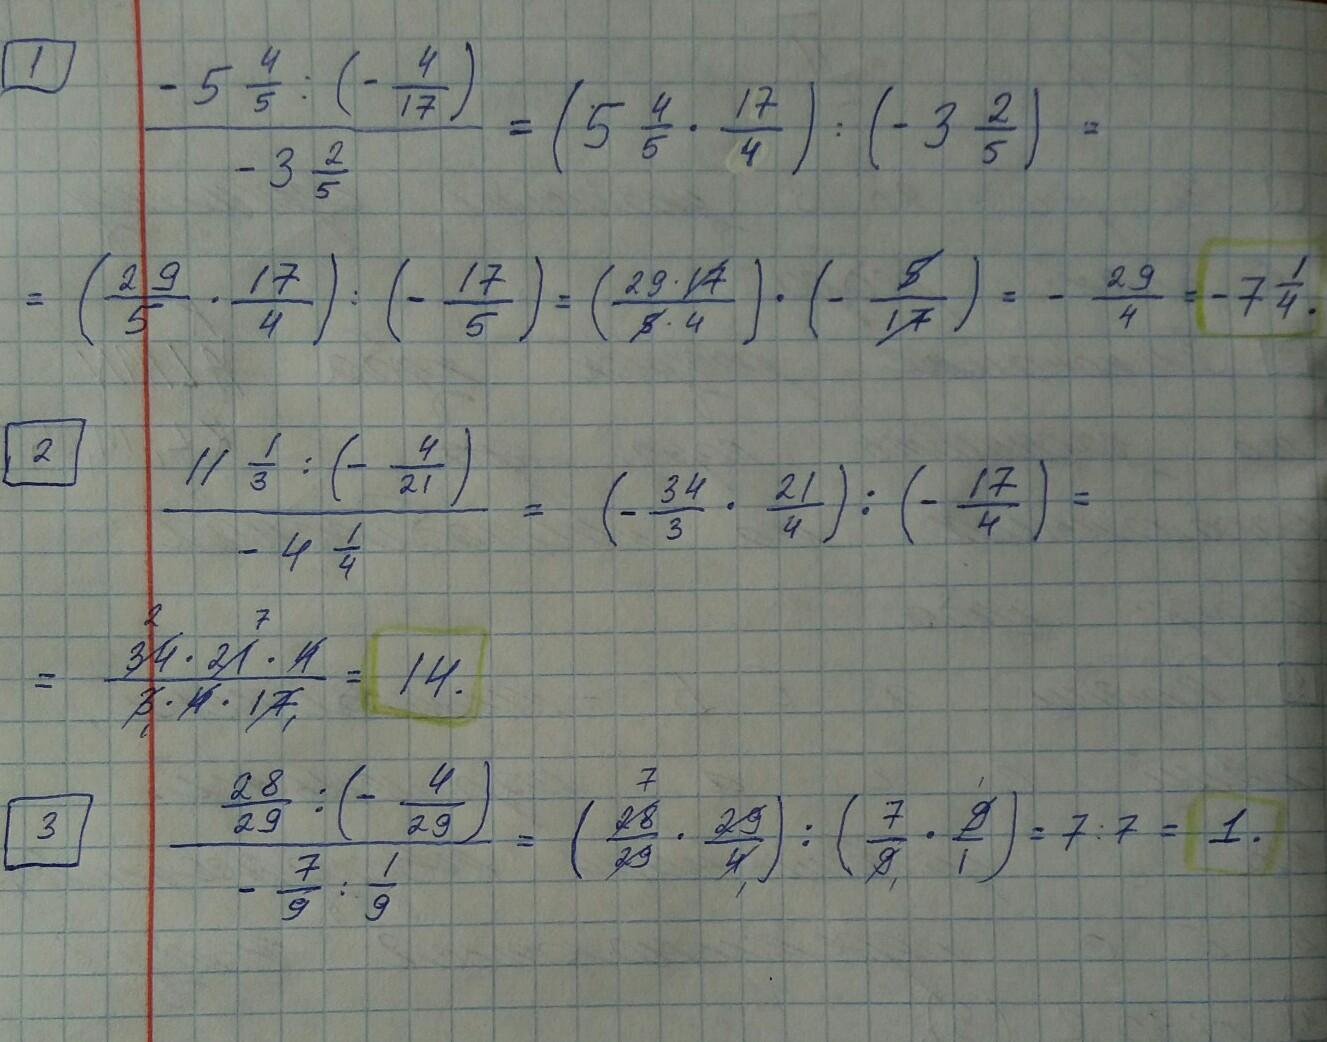 1 (-5 4/5 : (-4/17)) / (-3 2/5) = (5 4/5 · 17/4) : (-3 2/5) =
= (29/5 · 17/4) : (-17/5) = (29·17 / 5·4) · (-5/17) = -29/4 = -7 1/4.
2 (11 1/3 : (-4/21)) / (-4 1/4) = (-34/3 · 21/4) : (-17/4) =
= 34·21·4 / 3·4·17 = 14.
3 (28/29 : (-4/29)) / (-7/9 : 1/9) = (28/29 · 29/4) : (7/9 · 9/1) = 7:7 = 1.